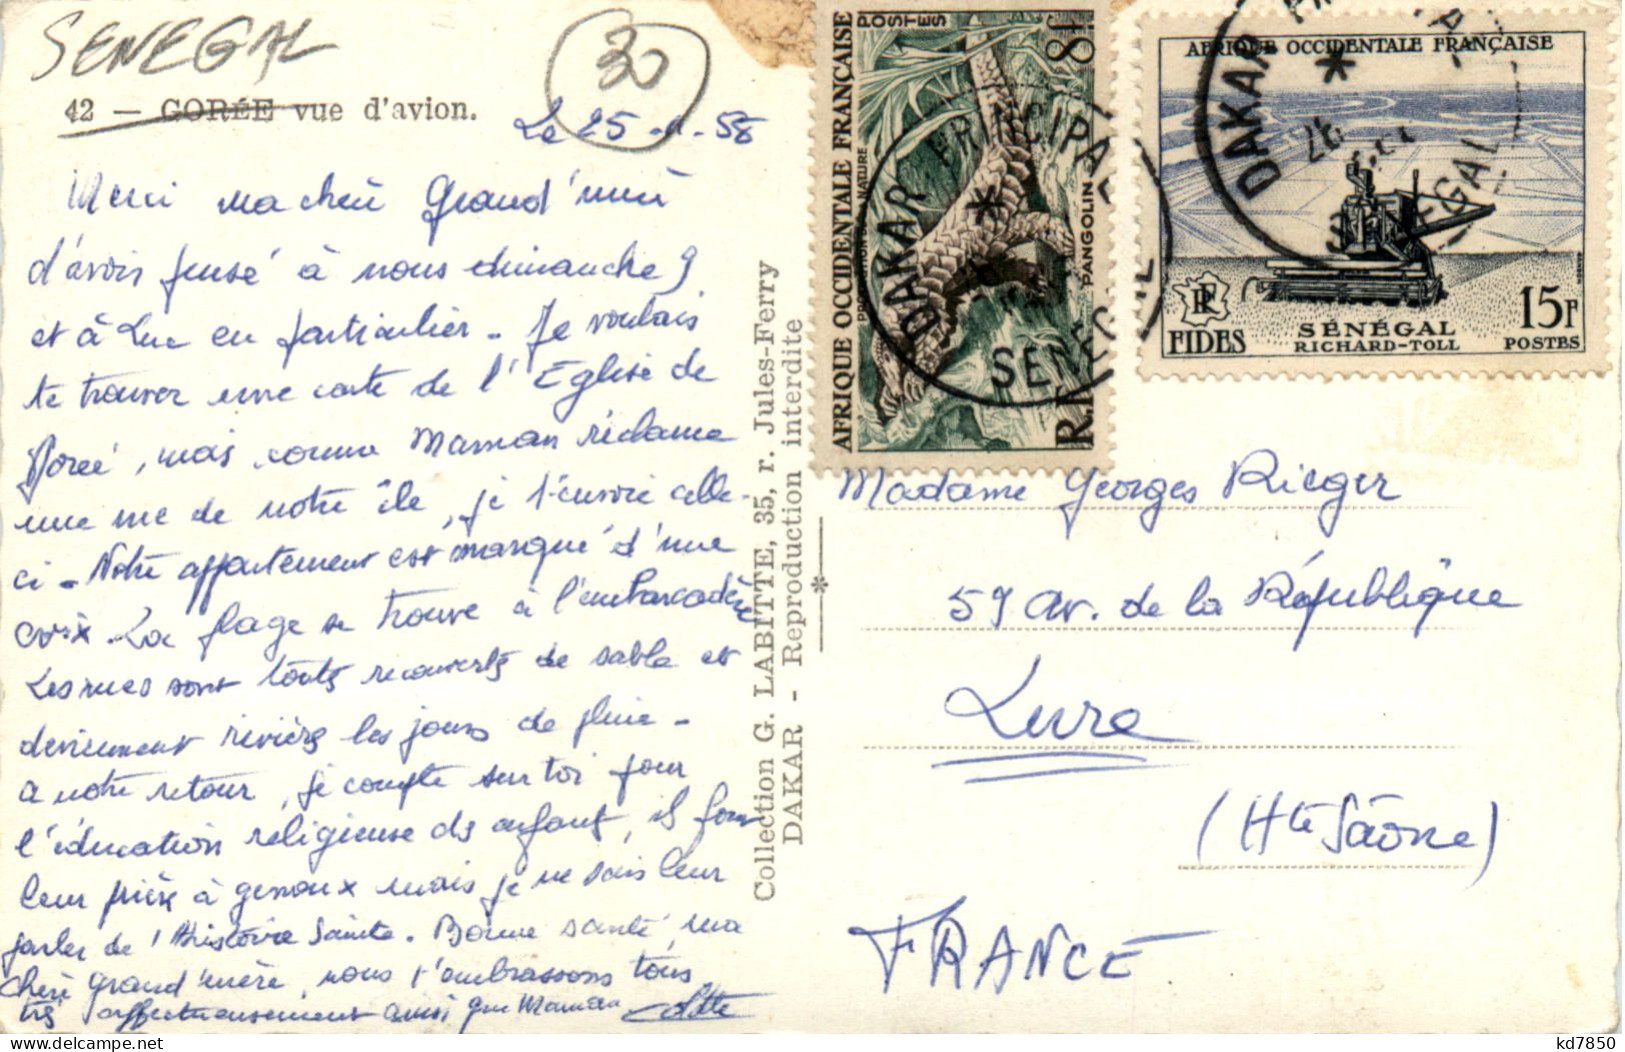 SENEGAL
30
42 — GORÉE vue d'avion.
Le 25 - - 58
Merci ma chère Grand'mère
d'avoir pensé à nous dimanche
et à Luc en particulier - Je voulais
te trouver une carte de l'Eglise de
Gorée, mais comme Maman réclame
une vue de notre île, je t'envoie celle-
ci - Notre appartement est marqué d'une
croix. La plage se trouve à l'embarcadère
Les rues sont toutes recouvertes de sable et
deviennent rivières les jours de pluie -
A notre retour, je compte sur toi pour
l'éducation religieuse des enfants, ils font
leur prière à genoux mais je ne sais leur
parler de l'Histoire Sainte. Bonne santé ma
chère grand'mère, nous t'embrassons tous
très affectueusement ainsi que Maman
Collection G. LABITTE, 35, r. Jules-Ferry
DAKAR - Reproduction interdite
AFRIQUE OCCIDENTALE FRANÇAISE
POSTES
8F
PROTECTION NATURE
PANGOLIN
R.F.
DAKAR PRINCIPAL
SENEGAL
AFRIQUE OCCIDENTALE FRANÇAISE
FIDES
SÉNÉGAL
RICHARD-TOLL
15F
POSTES
DAKAR
SENEGAL
Madame Georges Rieger
59 av. de la République
Lure
(Hte Saône)
FRANCE
kd7850